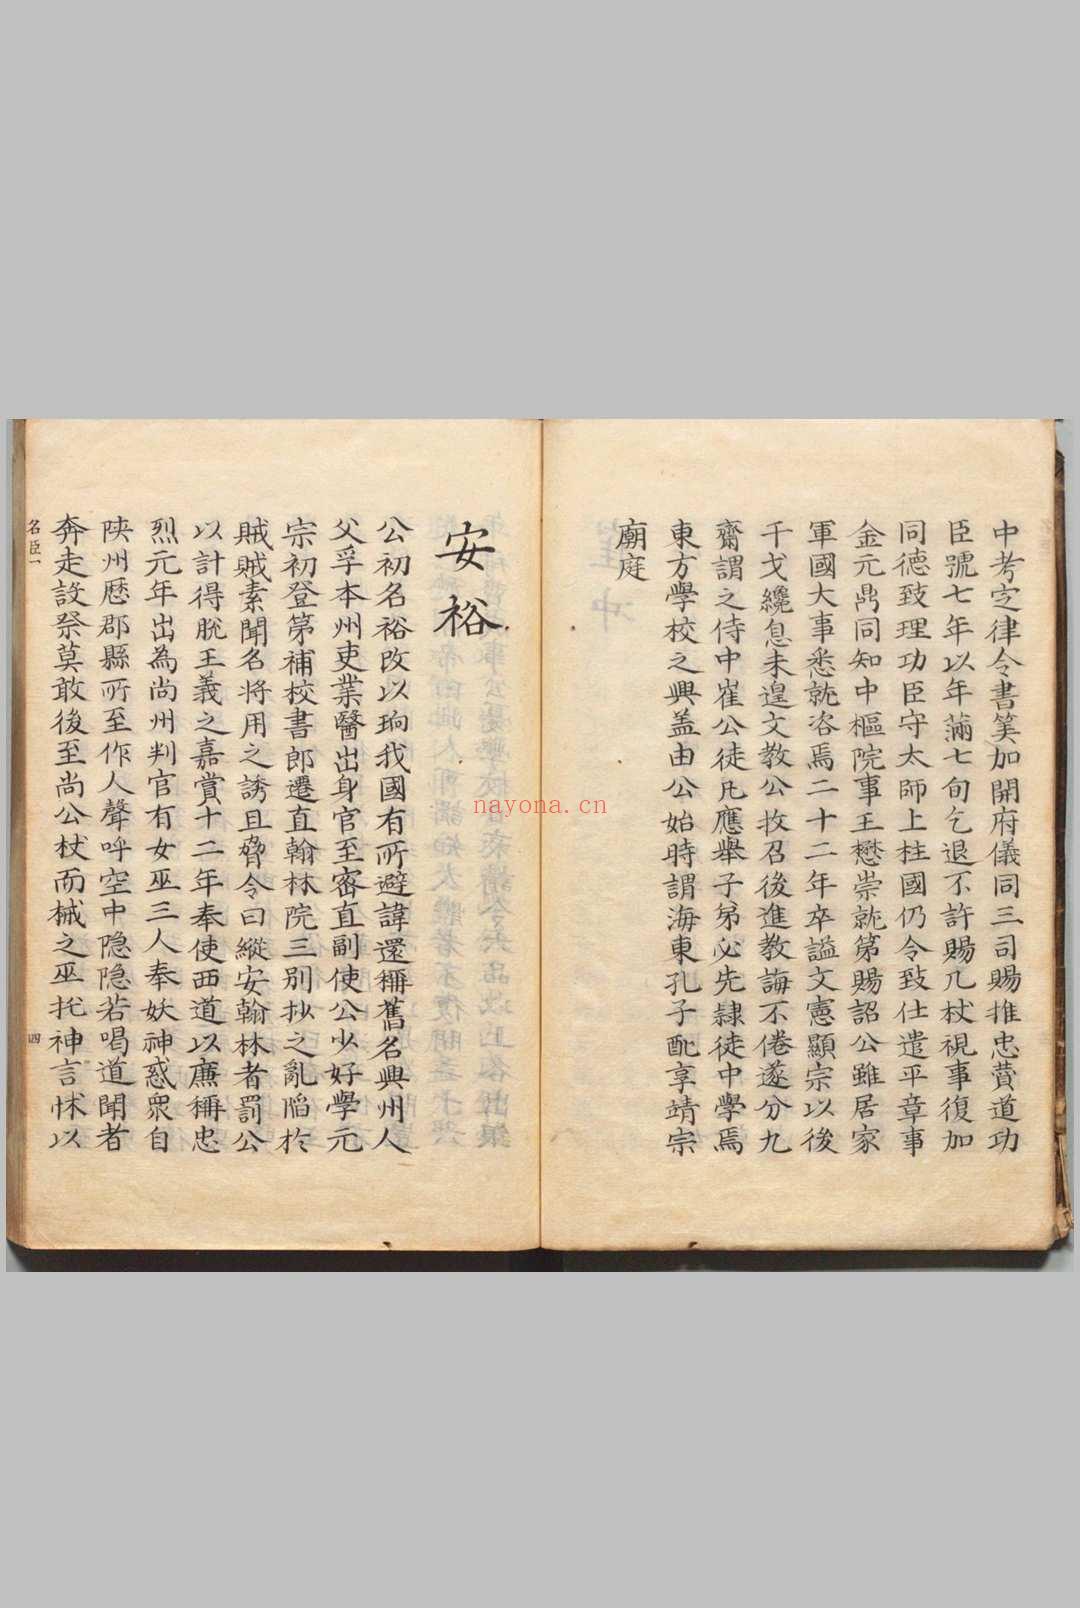 中考定律令書筭加開府儀同三司賜推忠賛道功
臣號七年以年滿七旬乞退不許賜几杖視事復加
同德致理功臣守太師上柱國仍令致仕遣平章事
金元鼎同知中樞院事王懋崇就第賜詔公雖居家
軍國大事悉就咨焉二十二年卒謚文憲顯宗以後
干戈纔息未遑文教公收召後進教誨不倦遂分九
齋謂之侍中崔公徒凡應舉子弟必先隷徒中學焉
東方學校之興盖由公始時謂海東孔子配享靖宗
廟庭
安裕
公初名裕改以珦我國有所避諱還稱舊名興州人
父孚本州吏業醫出身官至密直副使公少好學元
宗初登第補校書郎遷直翰林院三別抄之亂陷於
賊賊素聞名將用之誘且脅令曰縱安翰林者罰公
以計得脫王義之嘉賞十二年奉使西道以廉稱忠
烈元年出為尚州判官有女巫三人奉妖神惑衆自
陜州歷郡縣所至作人聲呼空中隱隱若喝道聞者
奔走設祭莫敢後至尚公杖而械之巫托神言怵以
名臣一
四
nayona.cn